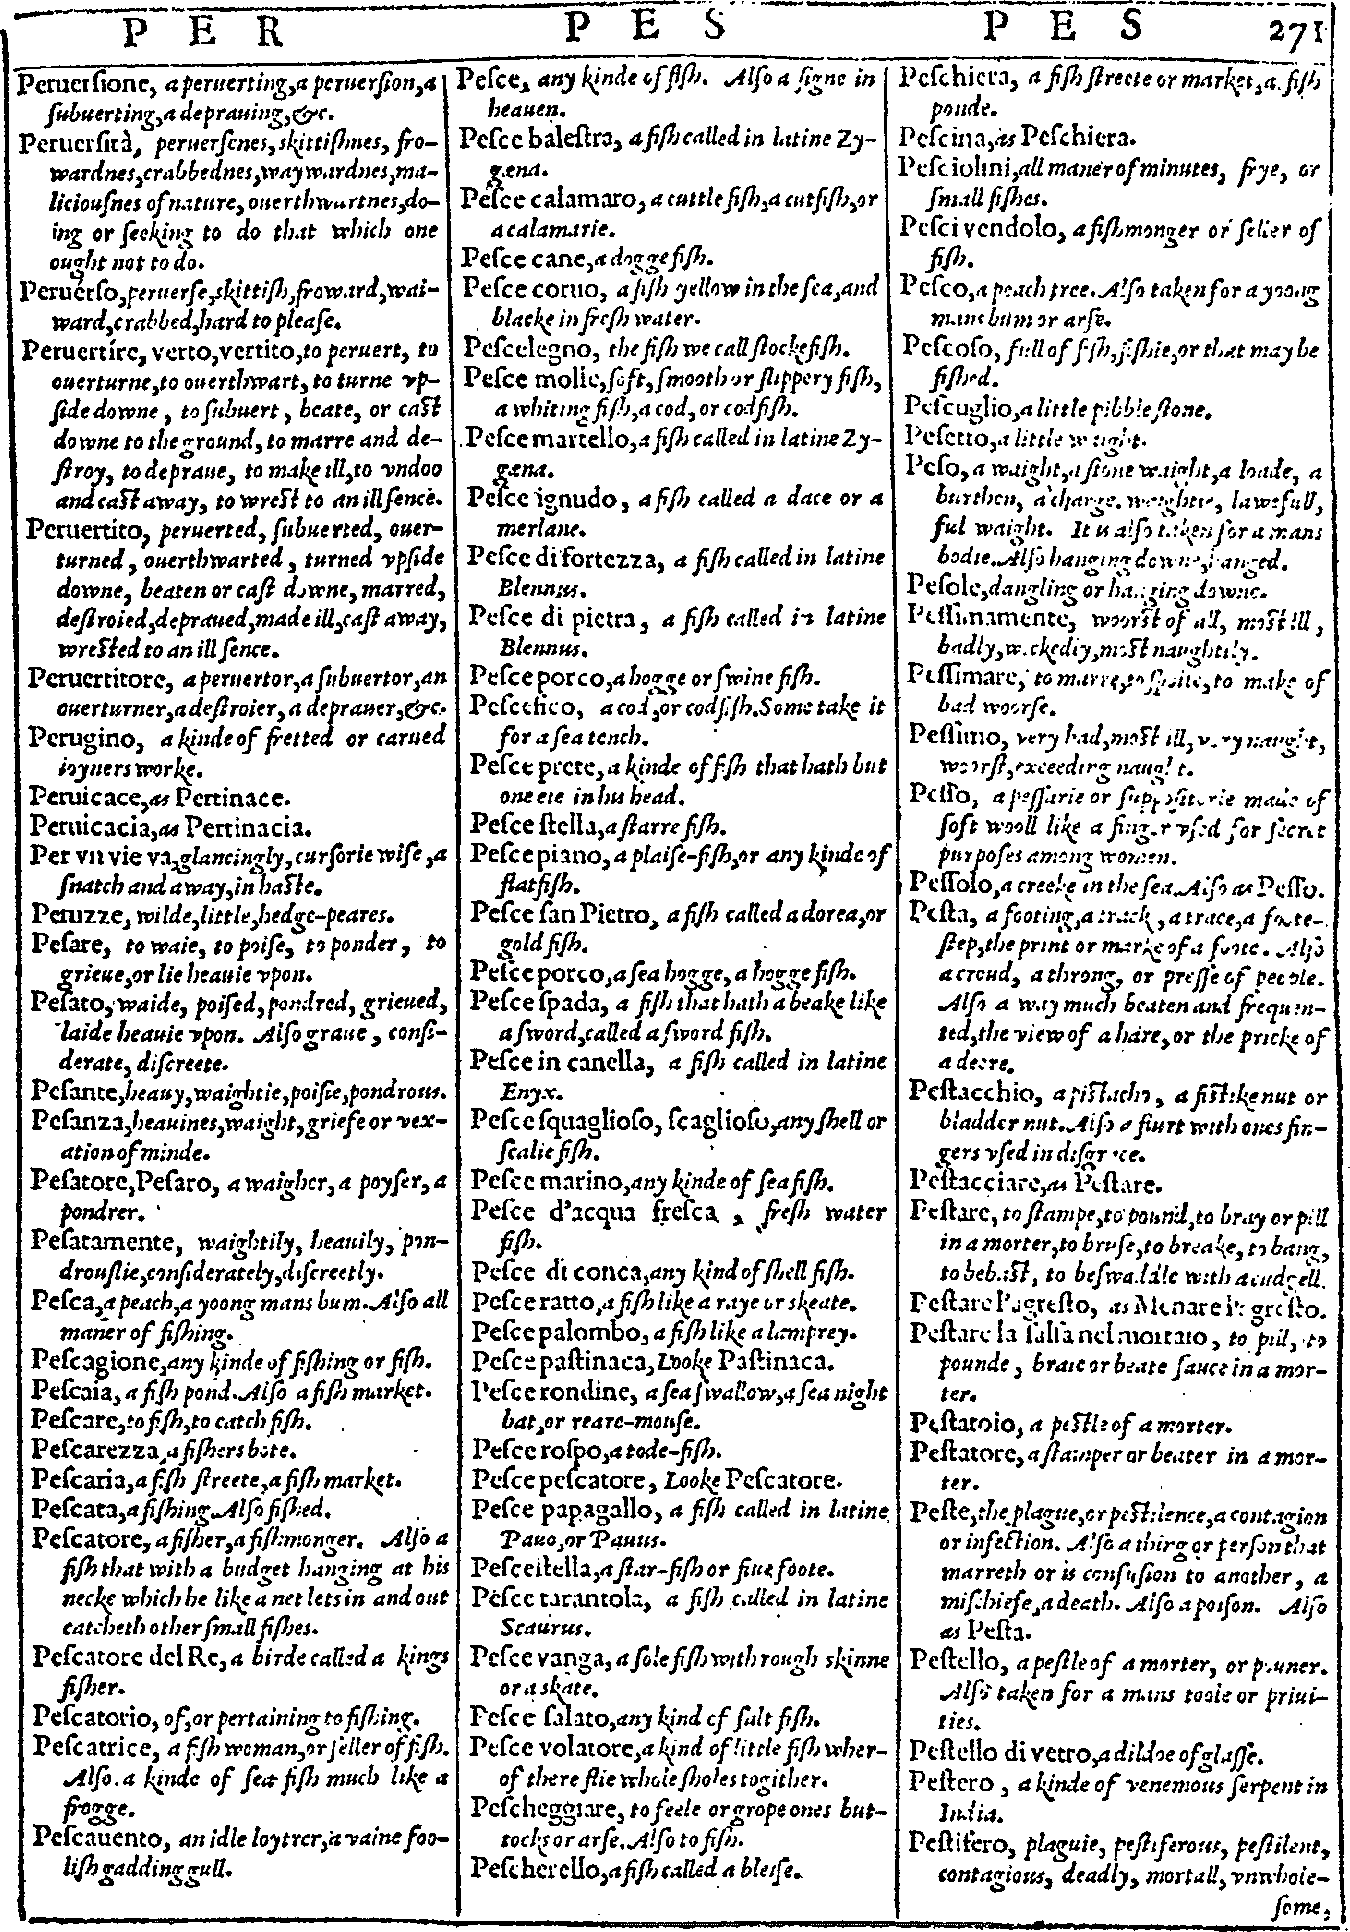 P E R
P E S
P E S 271
Peruerſione, a peruerting, a peruerſion, a
ſubuerting, a deprauing, &c.
Peruerſità, peruerſenes, skittiſhnes, fro-
wardnes, crabbednes, waywardnes, ma-
liciouſnes of nature, ouerthwartnes, do-
ing or ſeeking to do that which one
ought not to do.
Peruérſo, peruerſe, skittiſh, froward, wai-
ward, crabbed, hard to pleaſe.
Peruertíre, verto, vertito, to peruert, to
ouerturne, to ouerthwart, to turne vp-
ſide downe, to ſubuert, beate, or caſt
downe to the ground, to marre and de-
ſtroy, to depraue, to make ill, to vndoo
and caſt away, to wreſt to an ill ſence.
Peruertito, peruerted, ſubuerted, ouer-
turned, ouerthwarted, turned vpſide
downe, beaten or caſt downe, marred,
deſtroied, depraued, made ill, caſt away,
wreſted to an ill ſence.
Peruertitore, a peruertor, a ſubuertor, an
ouerturner, a deſtroier, a deprauer, &c.
Perugino, a kinde of fretted or carued
ioyners worke.
Peruicace, as Pertinace.
Peruicacia, as Pertinacia.
Per vn vie va, glancingly, curſorie wiſe, a
ſnatch and away, in haſte.
Peruzze, wilde, little, hedge-peares.
Peſare, to waie, to poiſe, to ponder, to
grieue, or lie heauie vpon.
Peſato, waide, poiſed, pondred, grieued,
laide heauie vpon. Alſo graue, conſi-
derate, diſcreete.
Peſante, heauy, waightie, poiſie, pondrous.
Peſanza, heauines, waight, griefe or vex-
ation of minde.
Peſatore, Peſaro, a waigher, a poyſer, a
pondrer.
Peſatamente, waightily, heauily, pon-
drouſlie, conſiderately, diſcreetly.
Peſca, a peach, a yoong mans bum. Alſo all
maner of fiſhing.
Peſcagione, any kinde of fiſhing or fiſh.
Peſcaia, a fiſh pond. Alſo a fiſh market.
Peſcare, to fiſh, to catch fiſh.
Peſcarezza, a fiſhers bote.
Peſcaria, a fiſh ſtreete, a fiſh market.
Peſcata, a fiſhing. Alſo fiſhed.
Peſcatore, a fiſher, a fiſhmonger. Alſo a
fiſh that with a budget hanging at his
necke which he like a net lets in and out
catcheth other ſmall fiſhes.
Peſcatore del Re, a birde called a kings
fiſher.
Peſcatorio, of, or pertaining to fiſhing.
Peſcatrice, a fiſh woman, or ſeller of fiſh.
Alſo a kinde of ſea fiſh much like a
frogge.
Peſcauento, an idle loytrer, a vaine foo-
liſh gadding gull.
Peſce, any kinde of fiſh. Alſo a ſigne in
heauen.
Peſce baleſtra, a fiſh called in latine Zy-
gæna.
Peſce calamaro, a cuttle fiſh, a cutfiſh, or
a calamarie.
Peſce cane, a dogge fiſh.
Peſce coruo, a fiſh yellow in the ſea, and
blacke in freſh water.
Peſcelegno, the fiſh we call ſtockefiſh.
Peſce molle, ſoft, ſmooth or ſlippery fiſh,
a whiting fiſh, a cod, or codfiſh.
Peſce martello, a fiſh called in latine Zy-
gæna.
Peſce ignudo, a fiſh called a dace or a
merlane.
Peſce di fortezza, a fiſh called in latine
Blennus.
Peſce di pietra, a fiſh called in latine
Blennus.
Peſce porco, a hogge or ſwine fiſh.
Peſce fico, a cod, or codfiſh. Some take it
for a ſea tench.
Peſce prete, a kinde of fiſh that hath but
one eie in his head.
Peſce ſtella, a ſtarre fiſh.
Peſce piano, a plaiſe-fiſh, or any kinde of
flatfiſh.
Peſce ſan Pietro, a fiſh called a dorea, or
gold fiſh.
Peſce porco, a ſea hogge, a hogge fiſh.
Peſce ſpada, a fiſh that hath a beake like
a ſword, called a ſword fiſh.
Peſce in canella, a fiſh called in latine
Enyx.
Peſce ſquaglioſo, ſcaglioſo, any ſhell or
ſcalie fiſh.
Peſce marino, any kinde of ſea fiſh.
Peſce d'acqua freſca, freſh water
fiſh.
Peſce di conca, any kind of ſhell fiſh.
Peſce ratto, a fiſh like a raye or skeate.
Peſce palombo, a fiſh like a lamprey.
Peſce paſtinaca, Looke Paſtinaca.
Peſce rondine, a ſea ſwallow, a ſea night
bat, or reare-mouſe.
Peſce roſpo, a tode-fiſh.
Peſce peſcatore, Looke Peſcatore.
Peſce papagallo, a fiſh called in latine
Pauo, or Pauus.
Peſceſtella, a ſtar-fiſh or fiue foote.
Peſce tarantola, a fiſh called in latine
Scaurus.
Peſce vanga, a ſole fiſh with rough skinne
or a skate.
Peſce ſalato, any kind of ſalt fiſh.
Peſce volatore, a kind of little fiſh wher-
of there flie whole ſholes togither.
Peſcheggiare, to feele or grope ones but-
tocks or arſe. Alſo to fiſh.
Peſcherello, a fiſh called a bleiſe.
Peſchiera, a fiſh ſtreete or market, a fiſh
ponde.
Peſcina, as Peſchiera.
Peſciolini, all maner of minutes, frye, or
ſmall fiſhes.
Peſci vendolo, a fiſhmonger or ſeller of
fiſh.
Peſco, a peach tree. Alſo taken for a yoong
mans bum or arſe.
Peſcoſo, full of fiſh, fiſhie, or that may be
fiſhed.
Peſcuglio, a little pibble ſtone.
Peſetto, a little waight.
Peſo, a waight, a ſtone waight, a loade, a
burthen, a charge. weightie, lawefull,
ful waight. It is alſo taken for a mans
bodie. Alſo hanging downe, hanged.
Peſole, dangling or hanging downe.
Peſſimamente, woorſt of all, moſt ill,
badly, wickedly, moſt naughtily.
Peſſimare, to marre, to ſpoile, to make of
bad woorſe.
Peſſimo, very bad, moſt ill, very naught,
woorſt, exceeding naught.
Peſſo, a peſſarie or ſuppoſitorie made of
ſoft wooll like a finger vſed for ſecret
purpoſes among women.
Peſſolo, a creeke in the ſea. Alſo as Peſſo.
Peſta, a footing, a track, a trace, a foote-
ſtep, the print or marke of a foote. Alſo
a croud, a throng, or preſſe of people.
Alſo a way much beaten and frequen-
ted, the view of a hare, or the pricke of
a deere.
Peſtacchio, a piſtacho, a fiſtikenut or
bladder nut. Alſo a flurt with ones fin-
gers vſed in diſgrace.
Peſtacciare, as Peſtare.
Peſtare, to ſtampe, to pound, to bray or pill
in a morter, to bruſe, to breake, to bang,
to bebaſt, to beſwaddle with a cudgell.
Peſtare l'agreſto, as Menare l'agreſto.
Peſtare la ſalſa nel mortaio, to pill, to
pounde, braie or beate ſauce in a mor-
ter.
Peſtatoio, a peſtle of a morter.
Peſtatore, a ſtamper or beater in a mor-
ter.
Peſte, the plague, or peſtilence, a contagion
or infection. Alſo a thing or perſon that
marreth or is confuſion to another, a
miſchiefe, a death. Alſo a poiſon. Alſo
as Peſta.
Peſtello, a peſtle of a morter, or pouner.
Alſo taken for a mans toole or priui-
ties.
Peſtello di vetro, a dildoe of glaſſe.
Peſtero, a kinde of venemous ſerpent in
India.
Peſtifero, plaguie, peſtiferous, peſtilent,
contagious, deadly, mortall, vnwhole-
ſome,